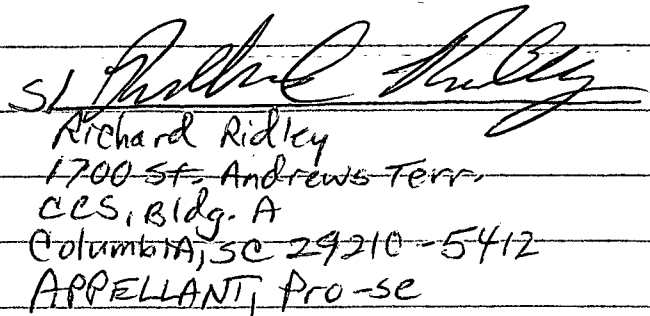 S/ Richard Ridley
Richard Ridley
1700 St. Andrews Terr.
CCS, Bldg. A
Columbia, SC 29210-5412
APPELLANT, Pro-se